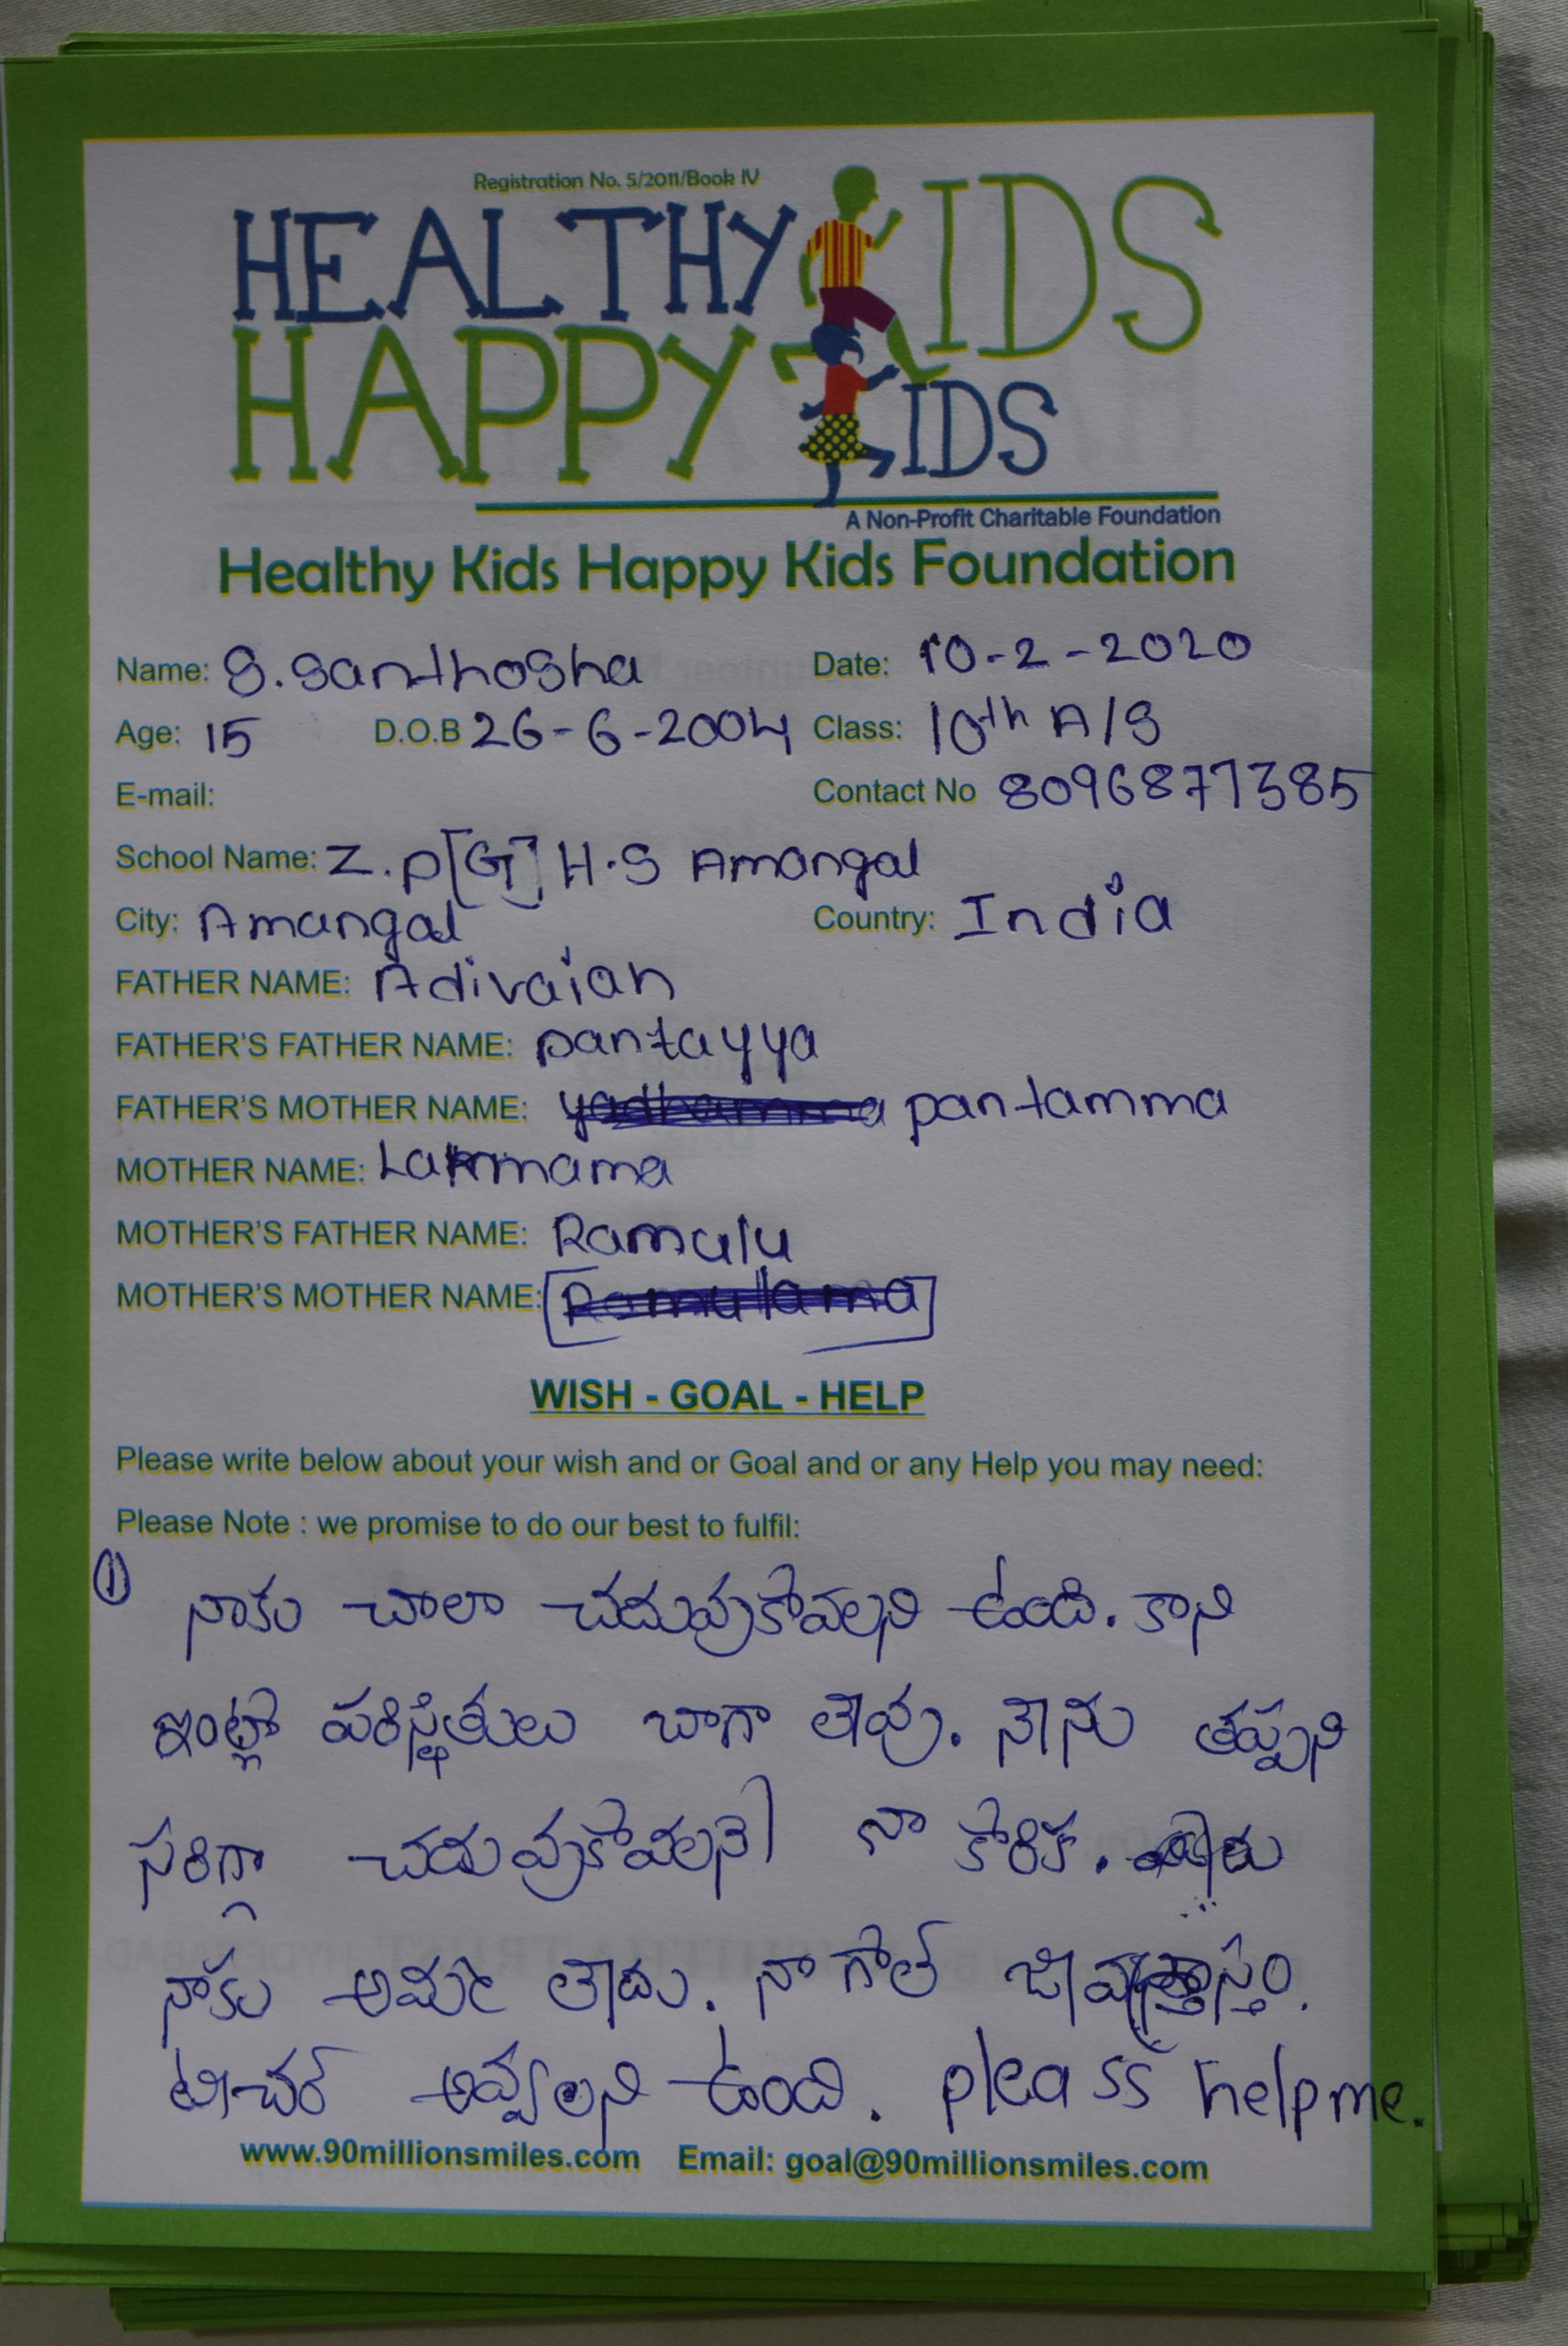 Registration No. 5/2011/Book IV
HEALTHY KIDS
HAPPY KIDS
A Non-Profit Charitable Foundation
Healthy Kids Happy Kids Foundation
Name: S. Santhosha Date: 10-2-2020
Age: 15 D.O.B 26-6-2004 Class: 10th A/S
E-mail: Contact No 8096877385
School Name: Z.P[G] H.S Amangal
City: Amangal Country: India
FATHER NAME: Adivaiah
FATHER'S FATHER NAME: pantayya
FATHER'S MOTHER NAME: pantamma
MOTHER NAME:
MOTHER'S FATHER NAME: Ramulu
MOTHER'S MOTHER NAME:
WISH - GOAL - HELP
Please write below about your wish and or Goal and or any Help you may need:
Please Note : we promise to do our best to fulfil:
① నాకు చాలా చదువుకోవలని ఉంది. కాని
ఇంట్లో పరిస్థితులు బాగా లేవు. నేను తప్పని
సరిగ్గా చదువుకోవలనే నా కోరిక.
నాకు అమ్మ లేదు. నా గోల్
టీచర్ అవ్వలని ఉంది. pleass help me.
www.90millionsmiles.com Email: goal@90millionsmiles.com